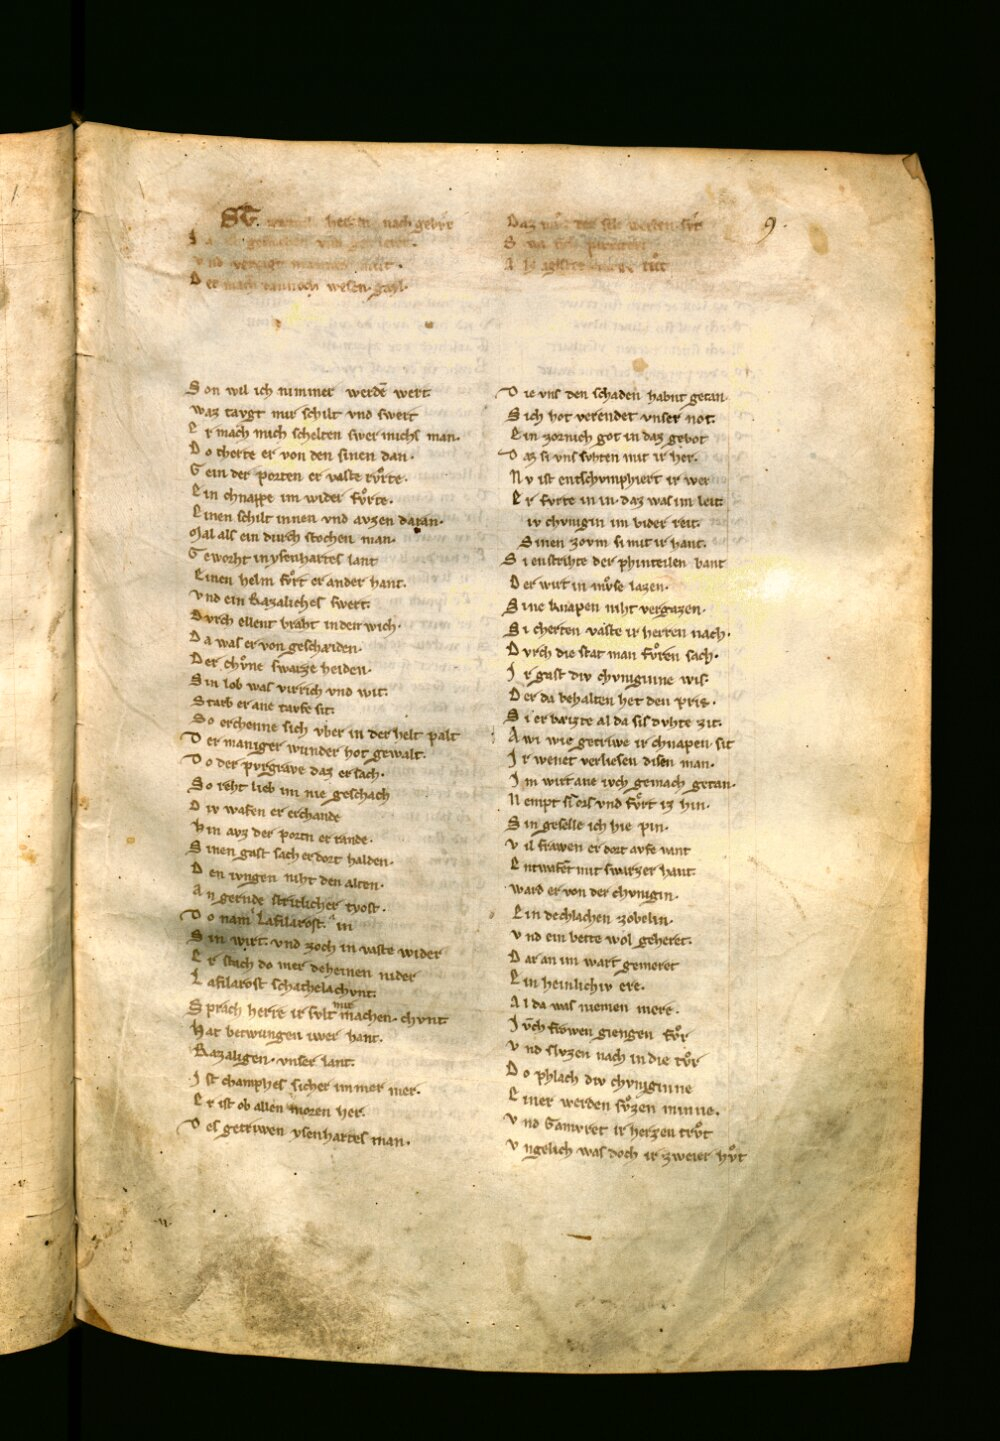 9.
herzen nach gebvr
vnd
D er mach dannoch wesen. gayl.
S on wil ich nimmer werdē wert.
waz tavgt mir schilt vnd swert
E r mach mich schelten swer michs man.
D o cherte er von den sinen dan.
G ein der porten er vaste rvͦrte.
E in chnappe im wider fvͦrte.
E inen schilt innen vnd avzen daran.
M al als ein durch stochen man.
G eworht in ysenhartes lant
E inen helm fvͦrt er ander hant.
v nd ein Razaliches swert.
D vrch ellent braht in der wich.
D a was er von gescheiden.
D er chvͦne swarze heiden.
S in lob was virrich vnd wit.
S tarb er ane tavfe sit.
S o erchenne sich vber in der helt palt
D er maniger wunder hot gewalt.
D o der pvrgrave daz ersach.
S o reht lieb im nie geschach
D iv wafen er erchande
H in avz der portn er rande.
S inen gast sach er dort halden.
D en ivngen niht den alten.
A n gernde stritlicher tyost.
D o nam Lafilarost in
S in wirt. vnd zoch in vaste wider
E r stach do mer deheinen nider
L afilarost schachelachvnt.
S prach herre ir svlt mir machen. chvnt
H at betwungen iwer hant.
R azaligen. vnser lant.
I st champhes sicher immer mer.
E r ist ob allen moren her.
D es getriwen ysenhartes man.
D az
S
A
D ie vns den schaden habnt getan.
S ich hot verendet vnser not.
E in zornich got in daz gebot
D az si vns svhten mit ir her.
N v ist entschvmphiert ir wer
E r fvrte in in. daz was im leit.
iv chvnigin im wider reit.
S inen zovm si mit ir hant.
S i enstrihte der phinteilen bant
D er wirt in mvͦse lazen.
S ine knapen niht vergazen.
S i cherten vaste ir herren nach.
D vrch die stat man fvͦren sach.
I r gast div chvniginne wis.
D er da behalten het den pris.
S i erbeizte al da sis dvhte zit.
A wi wie getriwe ir chnapen sit
I r wenet verliesen disen man.
I m wirt ane ivch gemach getan.
N empt sͦ ors vnd fvͦrt iz hin.
S in geselle ich hie pin.
v il frawen er dort avfe vant
E ntwafēt mit swarzer hant.
ward er von der chvnigin.
E in dechlachen zobelin.
v nd ein bette wol geheret.
D ar an im wart gemeret
E in heinlichiv ere.
A l da was niemen mere.
I vͦch frowen giengen fvͦr
v nd slvzen nach in die tvͦr
D o phlach div chvniginne
E iner werden svͦzen minne.
v nd Gamvret ir herzen trvͦt
v ngelich was doch ir zweier hvͦt